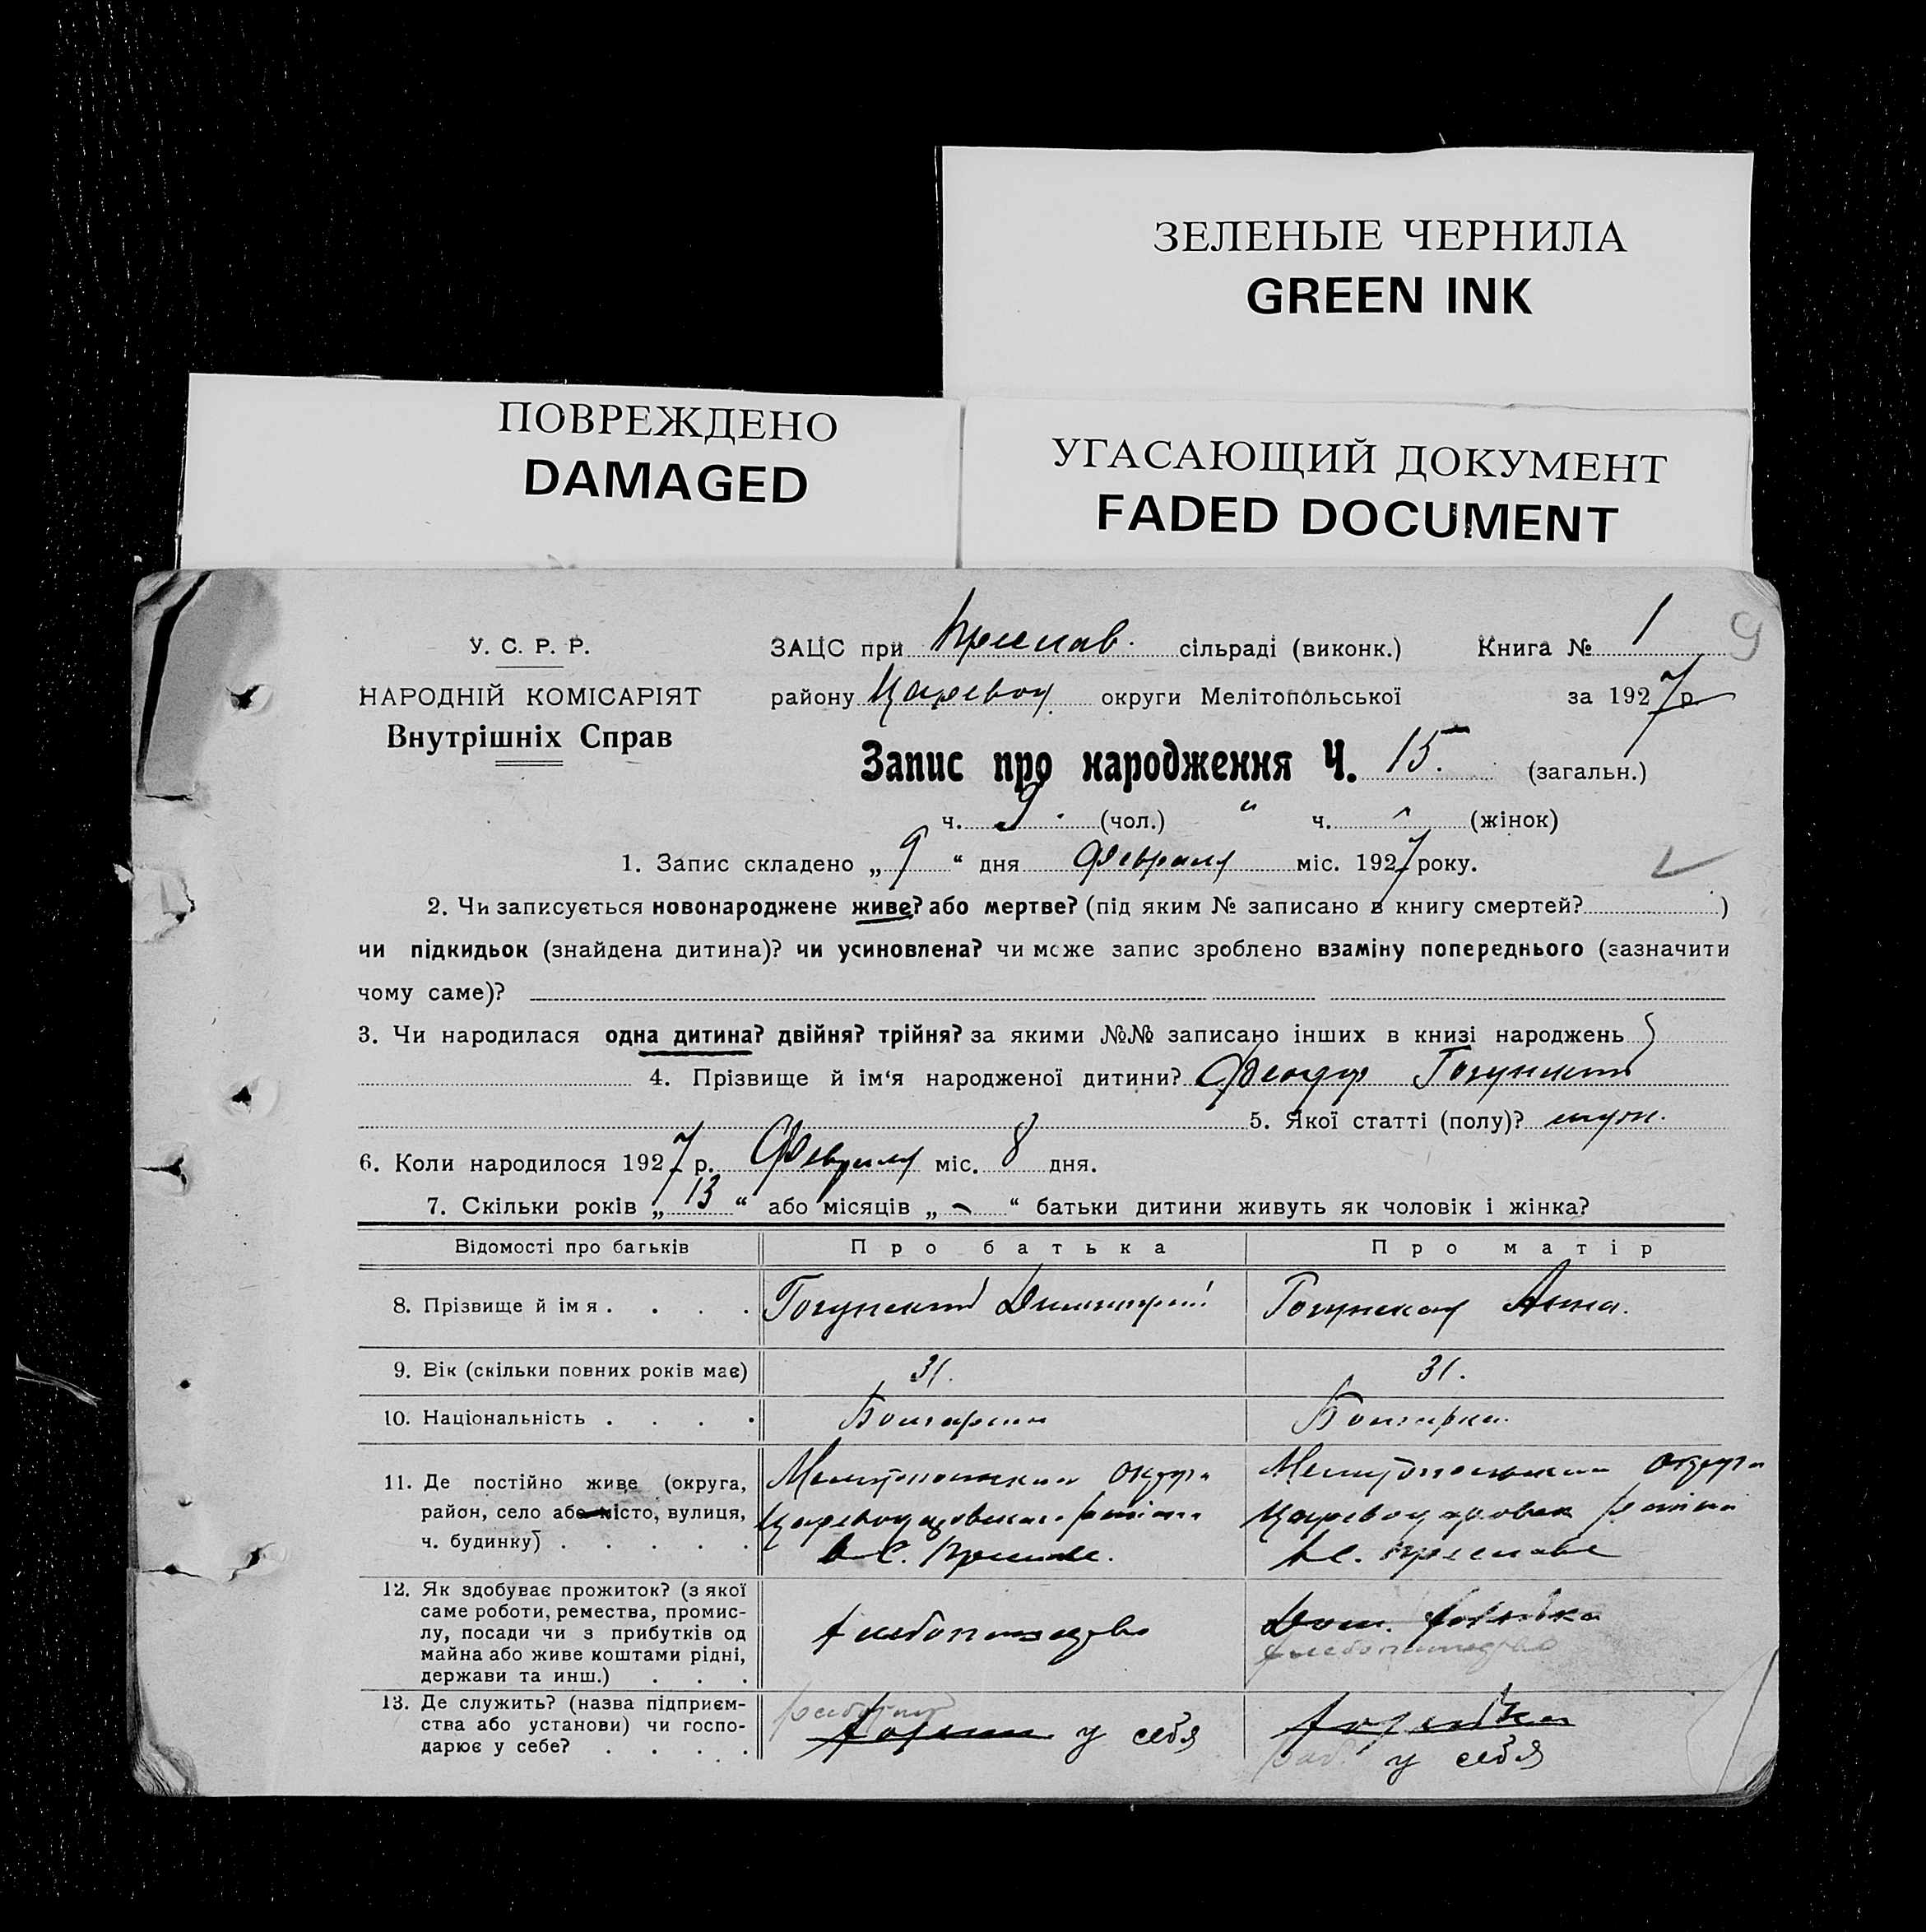 ЗЕЛЕНЫЕ ЧЕРНИЛА
GREEN INK
ПОВРЕЖДЕНО
DAMAGED
УГАСАЮЩИЙ ДОКУМЕНТ
FADED DOCUMENT
У. С. Р. Р.
НАРОДНІЙ КОМІСАРІЯТ
Внутрішніх Справ
ЗАЦС при Преслав. сільраді (виконк.) Книга № 1 9
району Царевод. округи Мелітопольської за 1927 р.
Запис про народження Ч. 15. (загальн.)
ч. 9. (чол.) " ч. - (жінок)
1. Запис складено „ 9 “ дня Февраля міс. 1927 року.
2. Чи записується новонароджене живе? або мертве? (під яким № записано в книгу смертей? )
чи підкидьок (знайдена дитина)? чи усиновлена? чи може запис зроблено взаміну попереднього (зазначити
чому саме)?
3. Чи народилася одна дитина? двійня? трійня? за якими №№ записано інших в книзі народжень
4. Прізвище й ім‘я народженої дитини? Феодор
5. Якої статті (полу)? муж.
6. Коли народилося 1927 р. Февраля міс. 8 дня.
7. Скільки років „ 13 “ або місяців „ - “ батьки дитини живуть як чоловік і жінка?
Відомості про батьків Про батька Про матір
8. Прізвище й імя . . . . Димитрий Анна.
9. Вік (скільки повних років має) 31. 31.
10. Національність . . . . Болгарин Болгарка.
11. Де постійно живе (округа, район, село або місто, вулиця, ч. будинку) . . . . .
Мелитопольская округа
Цареводаровского района
в С. Преславе.
Мелитопольская округа
Цареводаровск района
в с. Преславе
12. Як здобуває прожиток? (з якої саме роботи, ремества, промислу, посади чи з прибутків од майна або живе коштами рідні, держави та инш.) . . .
хлебопашество
Дом. хозяйка
хлебопашество
13. Де служить? (назва підприємства або установи) чи господарює у себе? . . . .
хозяин у себя
хозяйка
у себя